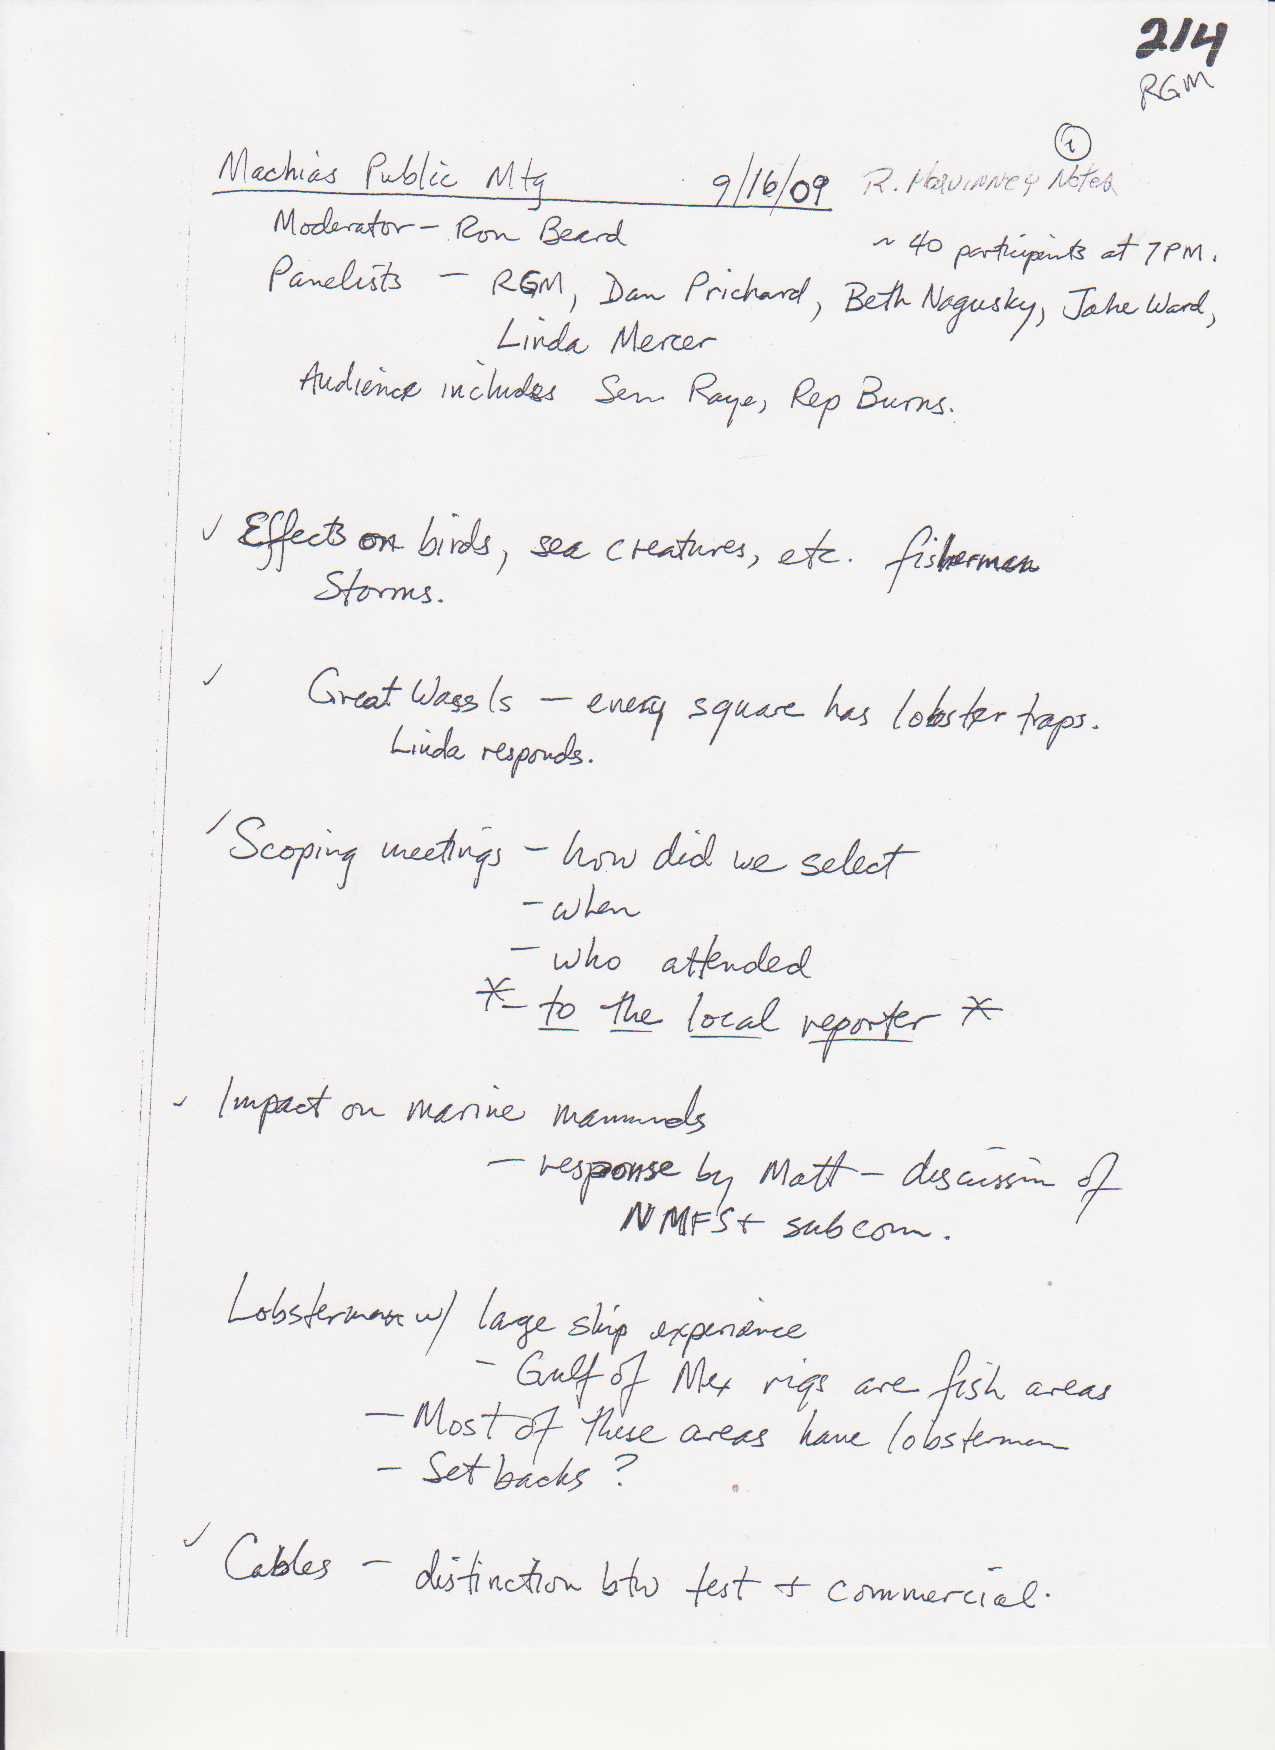 214
RGM
1
Machias Public Mtg 9/16/09 R. Marvinney Notes
Moderator - Ron Beard ~ 40 participants at 7PM.
Panelists - RGM, Dan Prichard, Beth Nagusky, Jake Ward,
Linda Mercer
Audience includes Sen Raye, Rep Burns.
✓ Effects on birds, sea creatures, etc. fisherman
Storms.
✓ Great Wass Is - every square has lobster traps.
Linda responds.
✓ Scoping meetings - how did we select
- when
- who attended
* - to the local reporter *
✓ Impact on marine mammals
- response by Matt - discussion of
NMFS + subcom.
Lobsterman w/ large ship experience
- Gulf of Mex rigs are fish areas
- Most of these areas have lobsterman
- Set backs?
✓ Cables - distinction btw test + commercial.